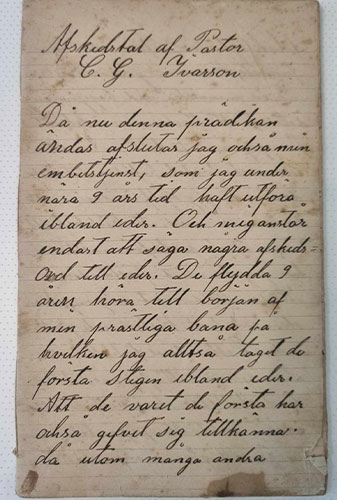 Afskedstal af Pastor
C. G. Ivarson
Då nu denna prädikan
ändas afslutar jag också min
embetstjenst, som jag under
nära 9 års tid haft utföra
ibland eder. Och mig anstår
endast att säga några afskeds=
ord till eder. De flydda 9
åren höra till början af
min prästliga bana på
hvilken jag alltså taget de
första stegen ibland eder.
Att de varet de första har
också gifvet sig tillkänna.
då utom många andra